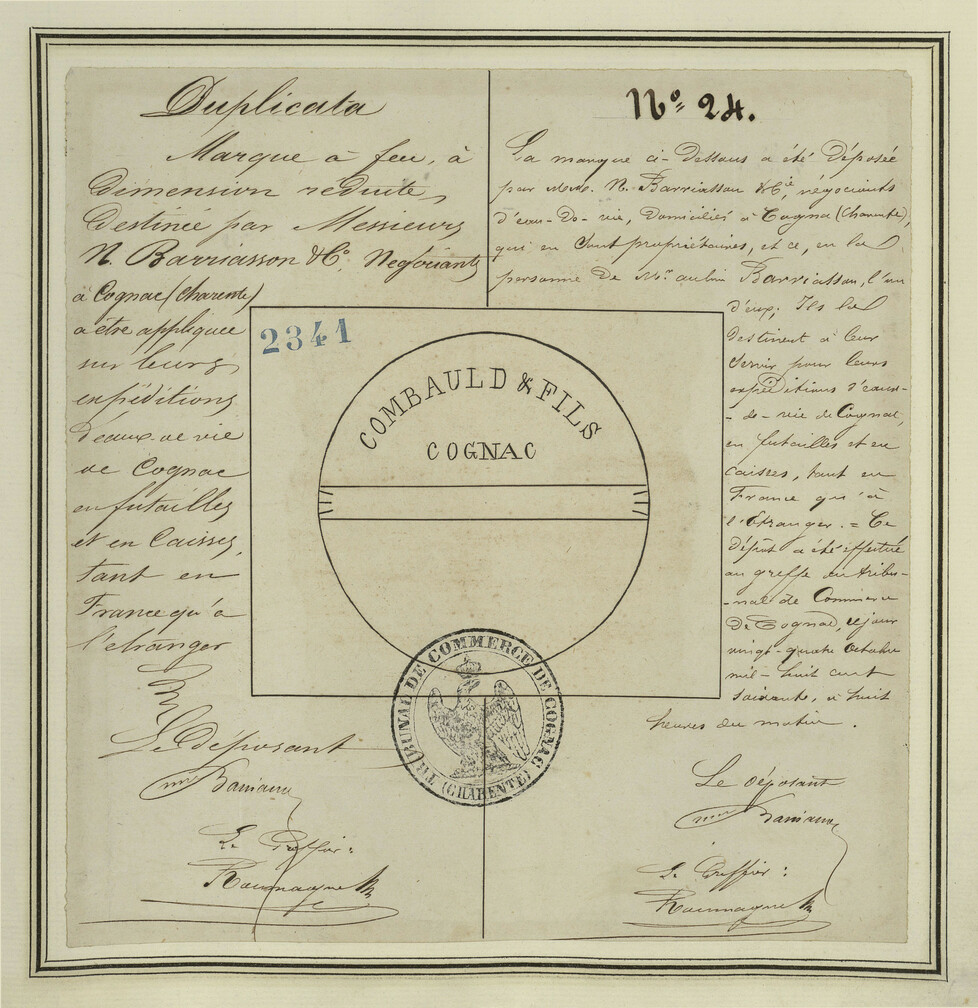 Duplicata
Marque à feu, à
dimension réduite,
destinée par Messieurs
N. Barriasson & Cº. Négociants
à Cognac (Charente)
a être appliquée
sur leurs
expéditions
d'eaux de vie
de Cognac
en futailles
et en Caisses,
tant en
France qu'à
l'étranger
Le déposant
Barriasson
Le Greffier:
2341
COMBAULD & FILS
COGNAC
TRIBUNAL DE COMMERCE DE COGNAC
(CHARENTE)
Nº 24.
La marque ci-dessous a été déposée
par MM. N. Barriasson & Cie, négociants
d'eau-de-vie, domiciliés à Cognac (Charente),
qui en sont propriétaires, et ce, en la
personne de Mr. aubin Barriasson, l'un
d'eux, Ils la
destinent à leur
servir pour leurs
expéditions d'eaux-
-de-vie de Cognac,
en futailles et en
caisses, tant en
France qu'à
l'étranger. = Ce
dépôt a été effectué
au greffe du tribu-
-nal de Commerce
de Cognac, ce jour
vingt-quatre Octobre
mil-huit cent
soixante, à huit
heures du matin.
Le déposant
Barriasson
Le Greffier: